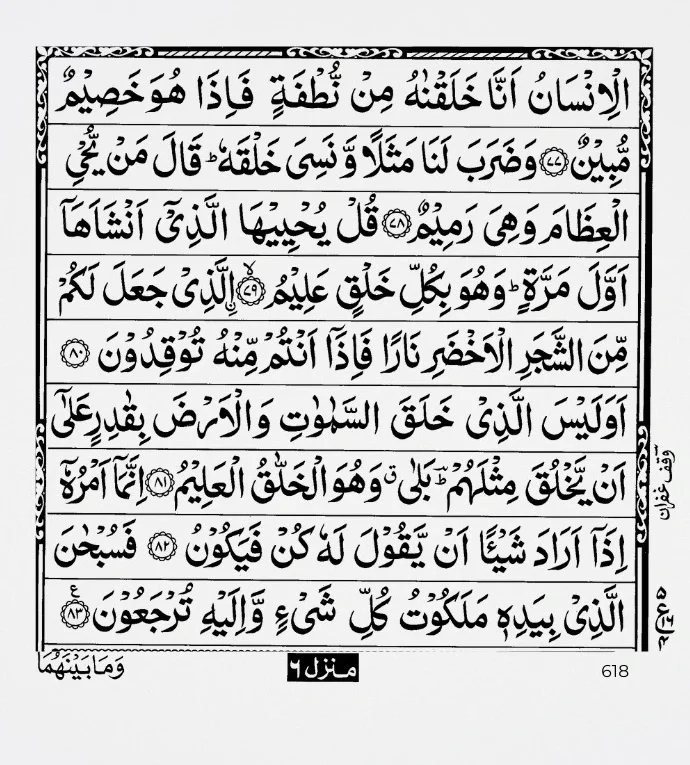 الْاِنْسَانُ اَنَّا خَلَقْنٰهُ مِنْ نُّطْفَةٍ فَاِذَا هُوَ خَصِيْمٌ
مُّبِيْنٌ ﴿۷۷﴾ وَضَرَبَ لَنَا مَثَلًا وَّنَسِىَ خَلْقَهٗ ؕ قَالَ مَنْ يُّحْىِ
الْعِظَامَ وَهِىَ رَمِيْمٌ ﴿۷۸﴾ قُلْ يُحْيِيْهَا الَّذِىْۤ اَنْشَاَهَاۤ
اَوَّلَ مَرَّةٍ ؕ وَهُوَ بِكُلِّ خَلْقٍ عَلِيْمُ ۙ﴿۷۹﴾ اۨلَّذِىْ جَعَلَ لَكُمْ
مِّنَ الشَّجَرِ الْاَخْضَرِ نَارًا فَاِذَاۤ اَنْتُمْ مِّنْهُ تُوْقِدُوْنَ ﴿۸۰﴾
اَوَلَيْسَ الَّذِىْ خَلَقَ السَّمٰوٰتِ وَالْاَرْضَ بِقٰدِرٍ عَلٰٓى
اَنْ يَّخْلُقَ مِثْلَهُمْ ؕ بَلٰى ۗ وَهُوَ الْخَلّٰقُ الْعَلِيْمُ ﴿۸۱﴾ اِنَّمَاۤ اَمْرُهٗۤ
اِذَاۤ اَرَادَ شَيْئًا اَنْ يَّقُوْلَ لَهٗ كُنْ فَيَكُوْنُ ﴿۸۲﴾ فَسُبْحٰنَ
الَّذِىْ بِيَدِهٖ مَلَكُوْتُ كُلِّ شَىْءٍ وَّاِلَيْهِ تُرْجَعُوْنَ ﴿۸۳﴾ ع
وقف غفران
۵
ع
۱۶
وَمَا بَيْنَهُمَا
منزل ۶
618